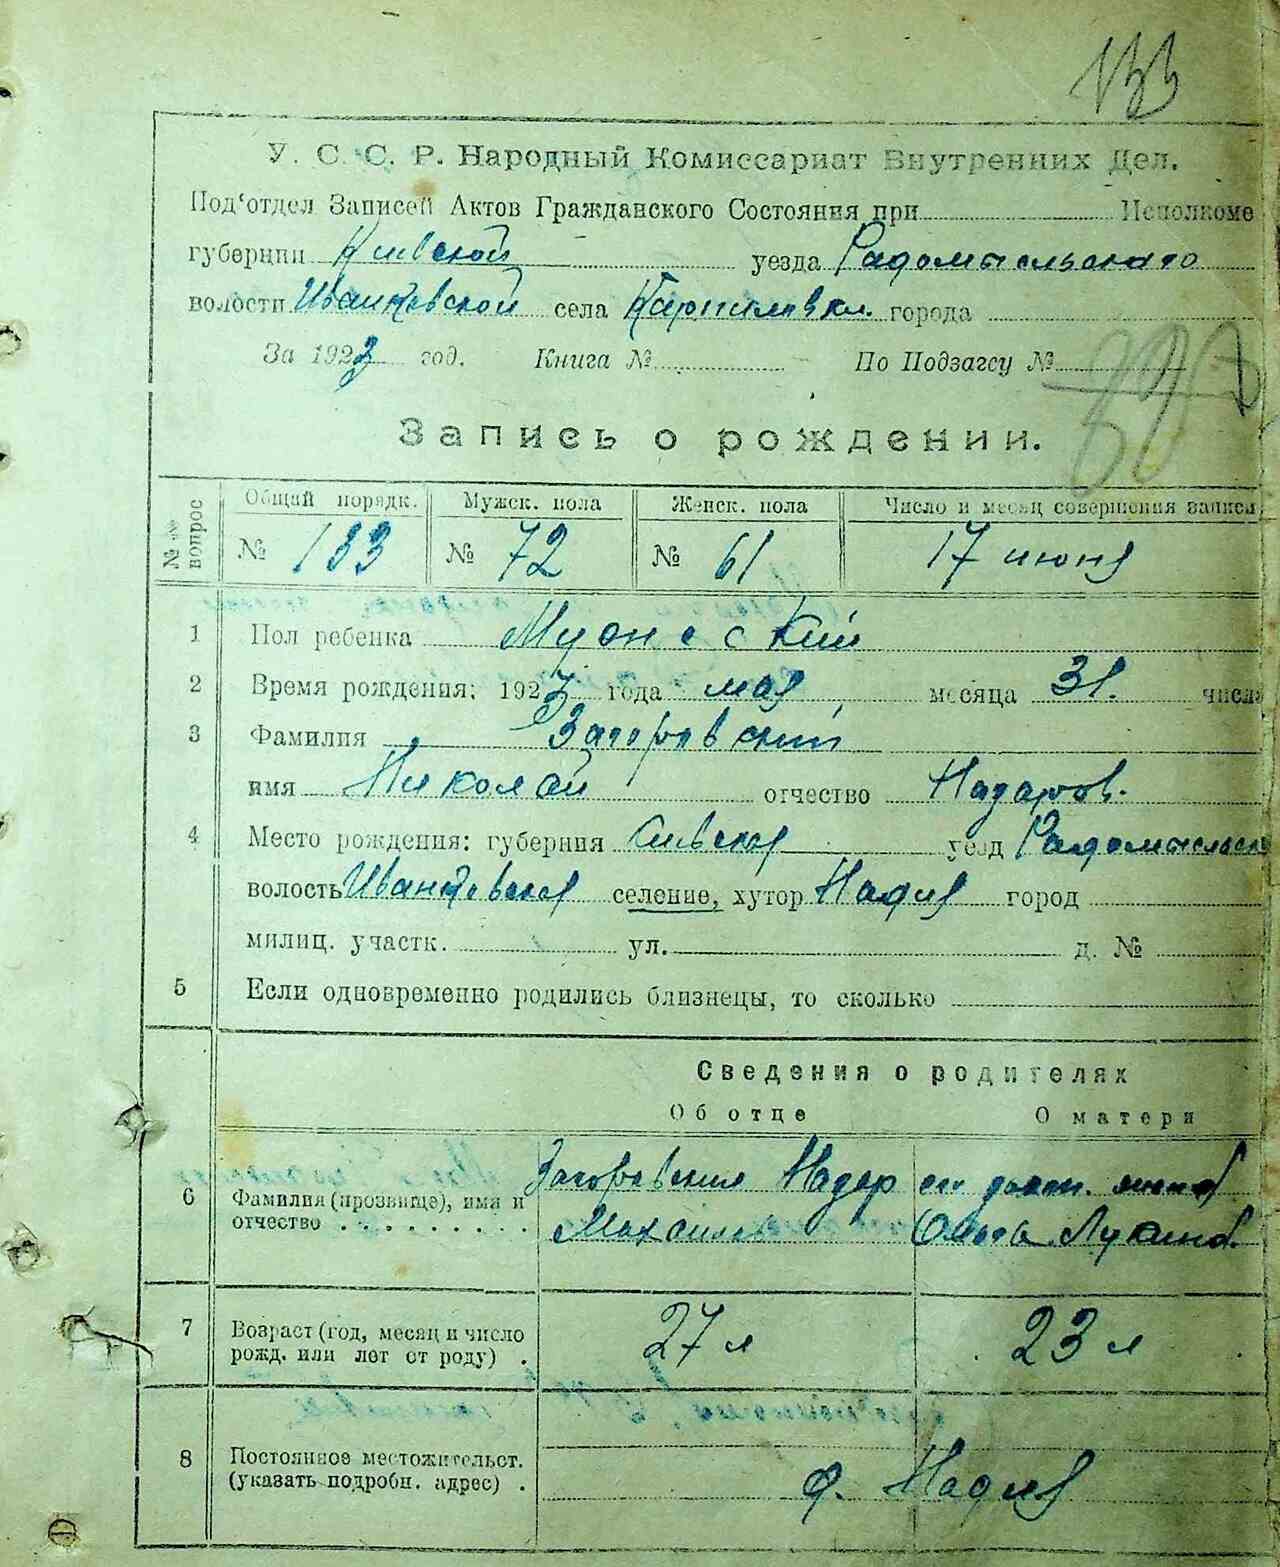 133
У. С. С. Р. Народный Комиссариат Внутренних Дел.
Под'отдел Записей Актов Гражданского Состояния при Исполкоме
губернии Киевской уезда Радомысльского
волости Иванковской села Карпиловки города
За 1923 год. Книга № По Подзагсу №
Запись о рождении.
№№ вопрос
Общий порядк. Мужск. пола Женск. пола Число и месяц совершения записи
№ 133 № 72 № 61 17 июня
1 Пол ребенка Мужеский
2 Время рождения: 1923 года мая месяца 31. числа
3 Фамилия Загоровский
имя Николай отчество Назаров.
4 Место рождения: губерния Киевская уезд Радомысльск
волость Иванковская селение, хутор город
милиц. участк. ул. д. №
5 Если одновременно родились близнецы, то сколько
Сведения о родителях
Об отце О матери
6 Фамилия (прозвище), имя и отчество
Загоровский Назар
его
Ольга Лукинов.
7 Возраст (год, месяц и число рожд. или лет от роду) .
27 л 23 л
8 Постоянное местожительст. (указать подробн. адрес) .